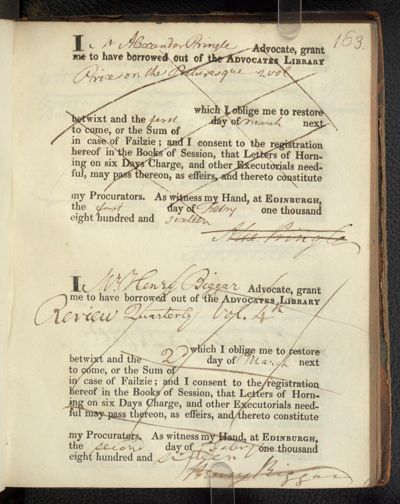 163.
I Mr Alexander Pringle Advocate, grant
me to have borrowed out of the ADVOCATES LIBRARY
Price on the Picturesque 2 vols
which I oblige me to restore
betwixt and the first day of March next
to come, or the Sum of
in case of Failzie; and I consent to the registration
hereof in the Books of Session, that Letters of Horn-
ing on six Days Charge, and other Executorials need-
ful, may pass thereon, as effeirs, and thereto constitute
my Procurators. As witness my Hand, at EDINBURGH,
the first day of Febry one thousand
eight hundred and sixteen
Alex Pringle
I Mr Henry Biggar Advocate, grant
me to have borrowed out of the ADVOCATES LIBRARY
Review Quarterly Vol. 4th
which I oblige me to restore
betwixt and the 2d day of March next
to come, or the Sum of
in case of Failzie; and I consent to the registration
hereof in the Books of Session, that Letters of Horn-
ing on six Days Charge, and other Executorials need-
ful may pass thereon, as effeirs, and thereto constitute
my Procurators. As witness my Hand, at EDINBURGH,
the second day of Febry one thousand
eight hundred and sixteen
Henry Biggar